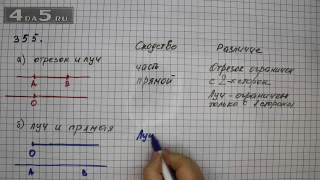 4DA5.RU
355.
Сходство
Различие
а) отрезок и луч
часть
прямой
Отрезок ограничен
с 2-х сторон.
А В
О
Луч - ограничен
только с 1 стороны
б) луч и прямая
О
А В
Луч